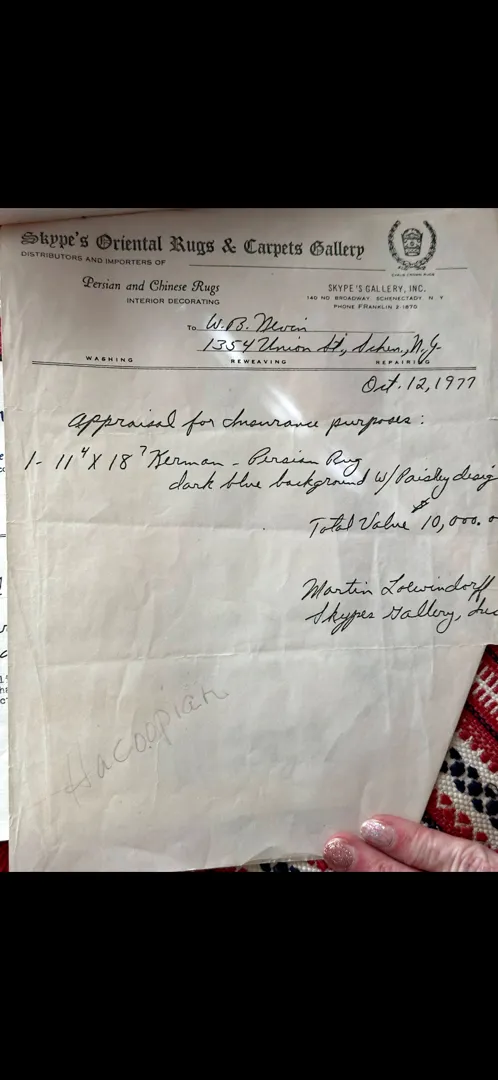 Skype's Oriental Rugs & Carpets Gallery
DISTRIBUTORS AND IMPORTERS OF
Persian and Chinese Rugs
INTERIOR DECORATING
SKYPE'S GALLERY, INC.
140 NO BROADWAY, SCHENECTADY, N. Y.
PHONE FRANKLIN 2-1870
To W. B. Nevin
1354 Union St., Schen., N.Y.
WASHING REWEAVING REPAIRING
Oct. 12, 1977
Appraisal for Insurance purposes:
1- 11⁴ X 18⁷ Kerman - Persian Rug
dark blue background w/ Paisley desig
Total Value $10,000.0
Martin Loewindorff
Skypes Gallery, Inc
Hacoopian